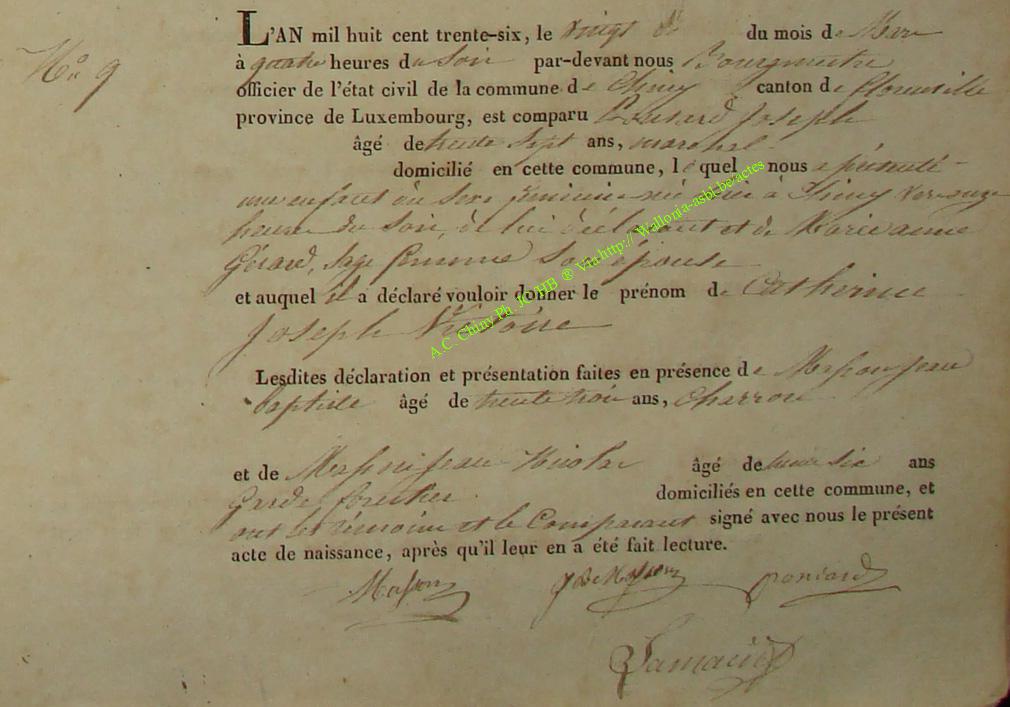 No 9
L'AN mil huit cent trente-six, le vingt du mois de Mars
à quatre heures du Soir par-devant nous Bourgmestre
officier de l'état civil de la commune de Chiny canton de Florenville
province de Luxembourg, est comparu Poncard Joseph
âgé de trente sept ans, marechal
domicilié en cette commune, lequel nous a présenté
une enfant du sexe feminin née hier à Chiny vers onze
heures du Soir, de lui déclarant et de Marie anne
Gérard, Sage femme Son épouse
et auquel il a déclaré vouloir donner le prénom de Catherine
Joseph Victoire
Lesdites déclaration et présentation faites en présence de Masson jean
baptiste âgé de trente trois ans, Charron
et de Masson jean Nicolas âgé de trente six ans
garde forestier domiciliés en cette commune, et
ont les témoins et le Comparant signé avec nous le présent
acte de naissance, après qu'il leur en a été fait lecture.
Masson JB Masson poncard
A.C. Chiny Ph. JCHB ® Via http:// Wallonia-asbl.be/actes